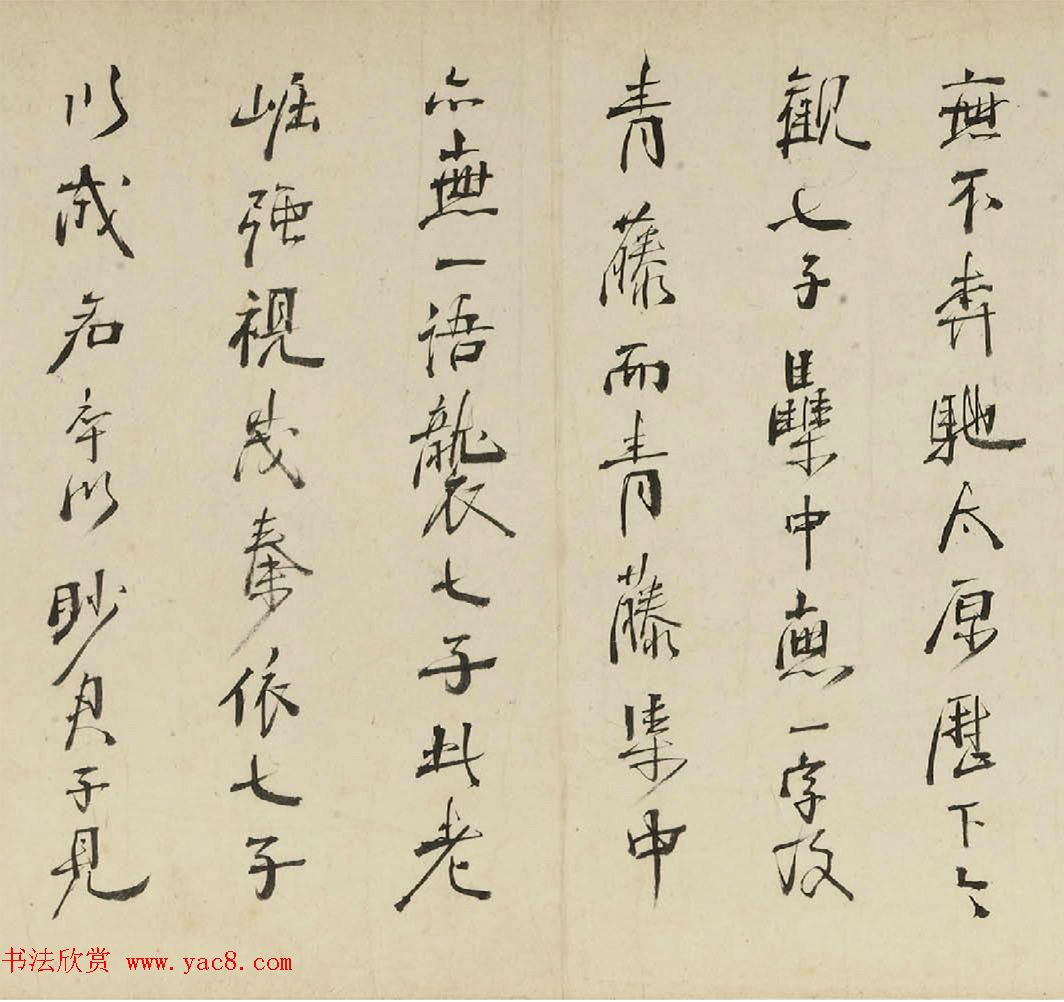 無不奔馳太原歷下今
觀七子雧中無一字
青藤而青藤集中
亦無一語襲七子此老
崛強視茂秦依七子
以成名卒以眇君子見
书法欣赏 www.yac8.com